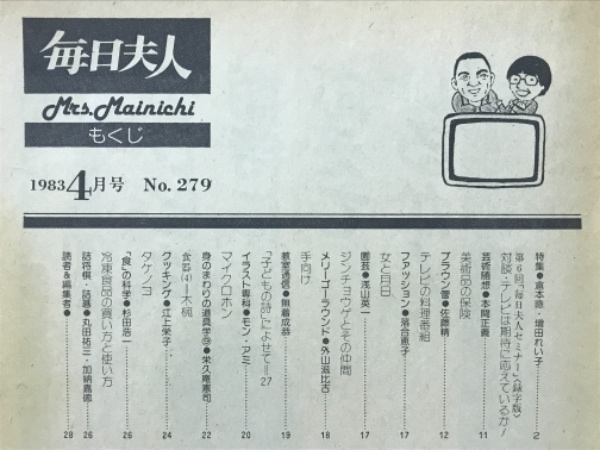 毎日夫人
Mrs. Mainichi
もくじ
1983 4月号 No. 279
特集●倉本聰・増田れい子
第6回「毎日夫人セミナー」〈録字版〉
対談・テレビは期待に応えているか！ 2
芸術随想●本間正義
美術品の保険 11
ブラウン管●佐藤精
テレビの料理番組 12
ファッション●落合恵子
女と月日 17
園芸●浅山英一
ジンチョウゲとその仲間 17
メリーゴーラウンド●外山滋比古
手向け 18
教室通信●無着成恭
「子どもの詩」によせて＝27 19
イラスト専科●モン・アミ
マイクロホン 20
身のまわりの道具学●栄久庵憲司
食器(4)＝木椀 22
クッキング●江上栄子
タケノコ 24
「食」の科学●杉田浩一
冷凍食品の買い方と使い方 26
詰将棋・詰碁●丸田祐三・加納嘉徳 26
読者&編集者● 28